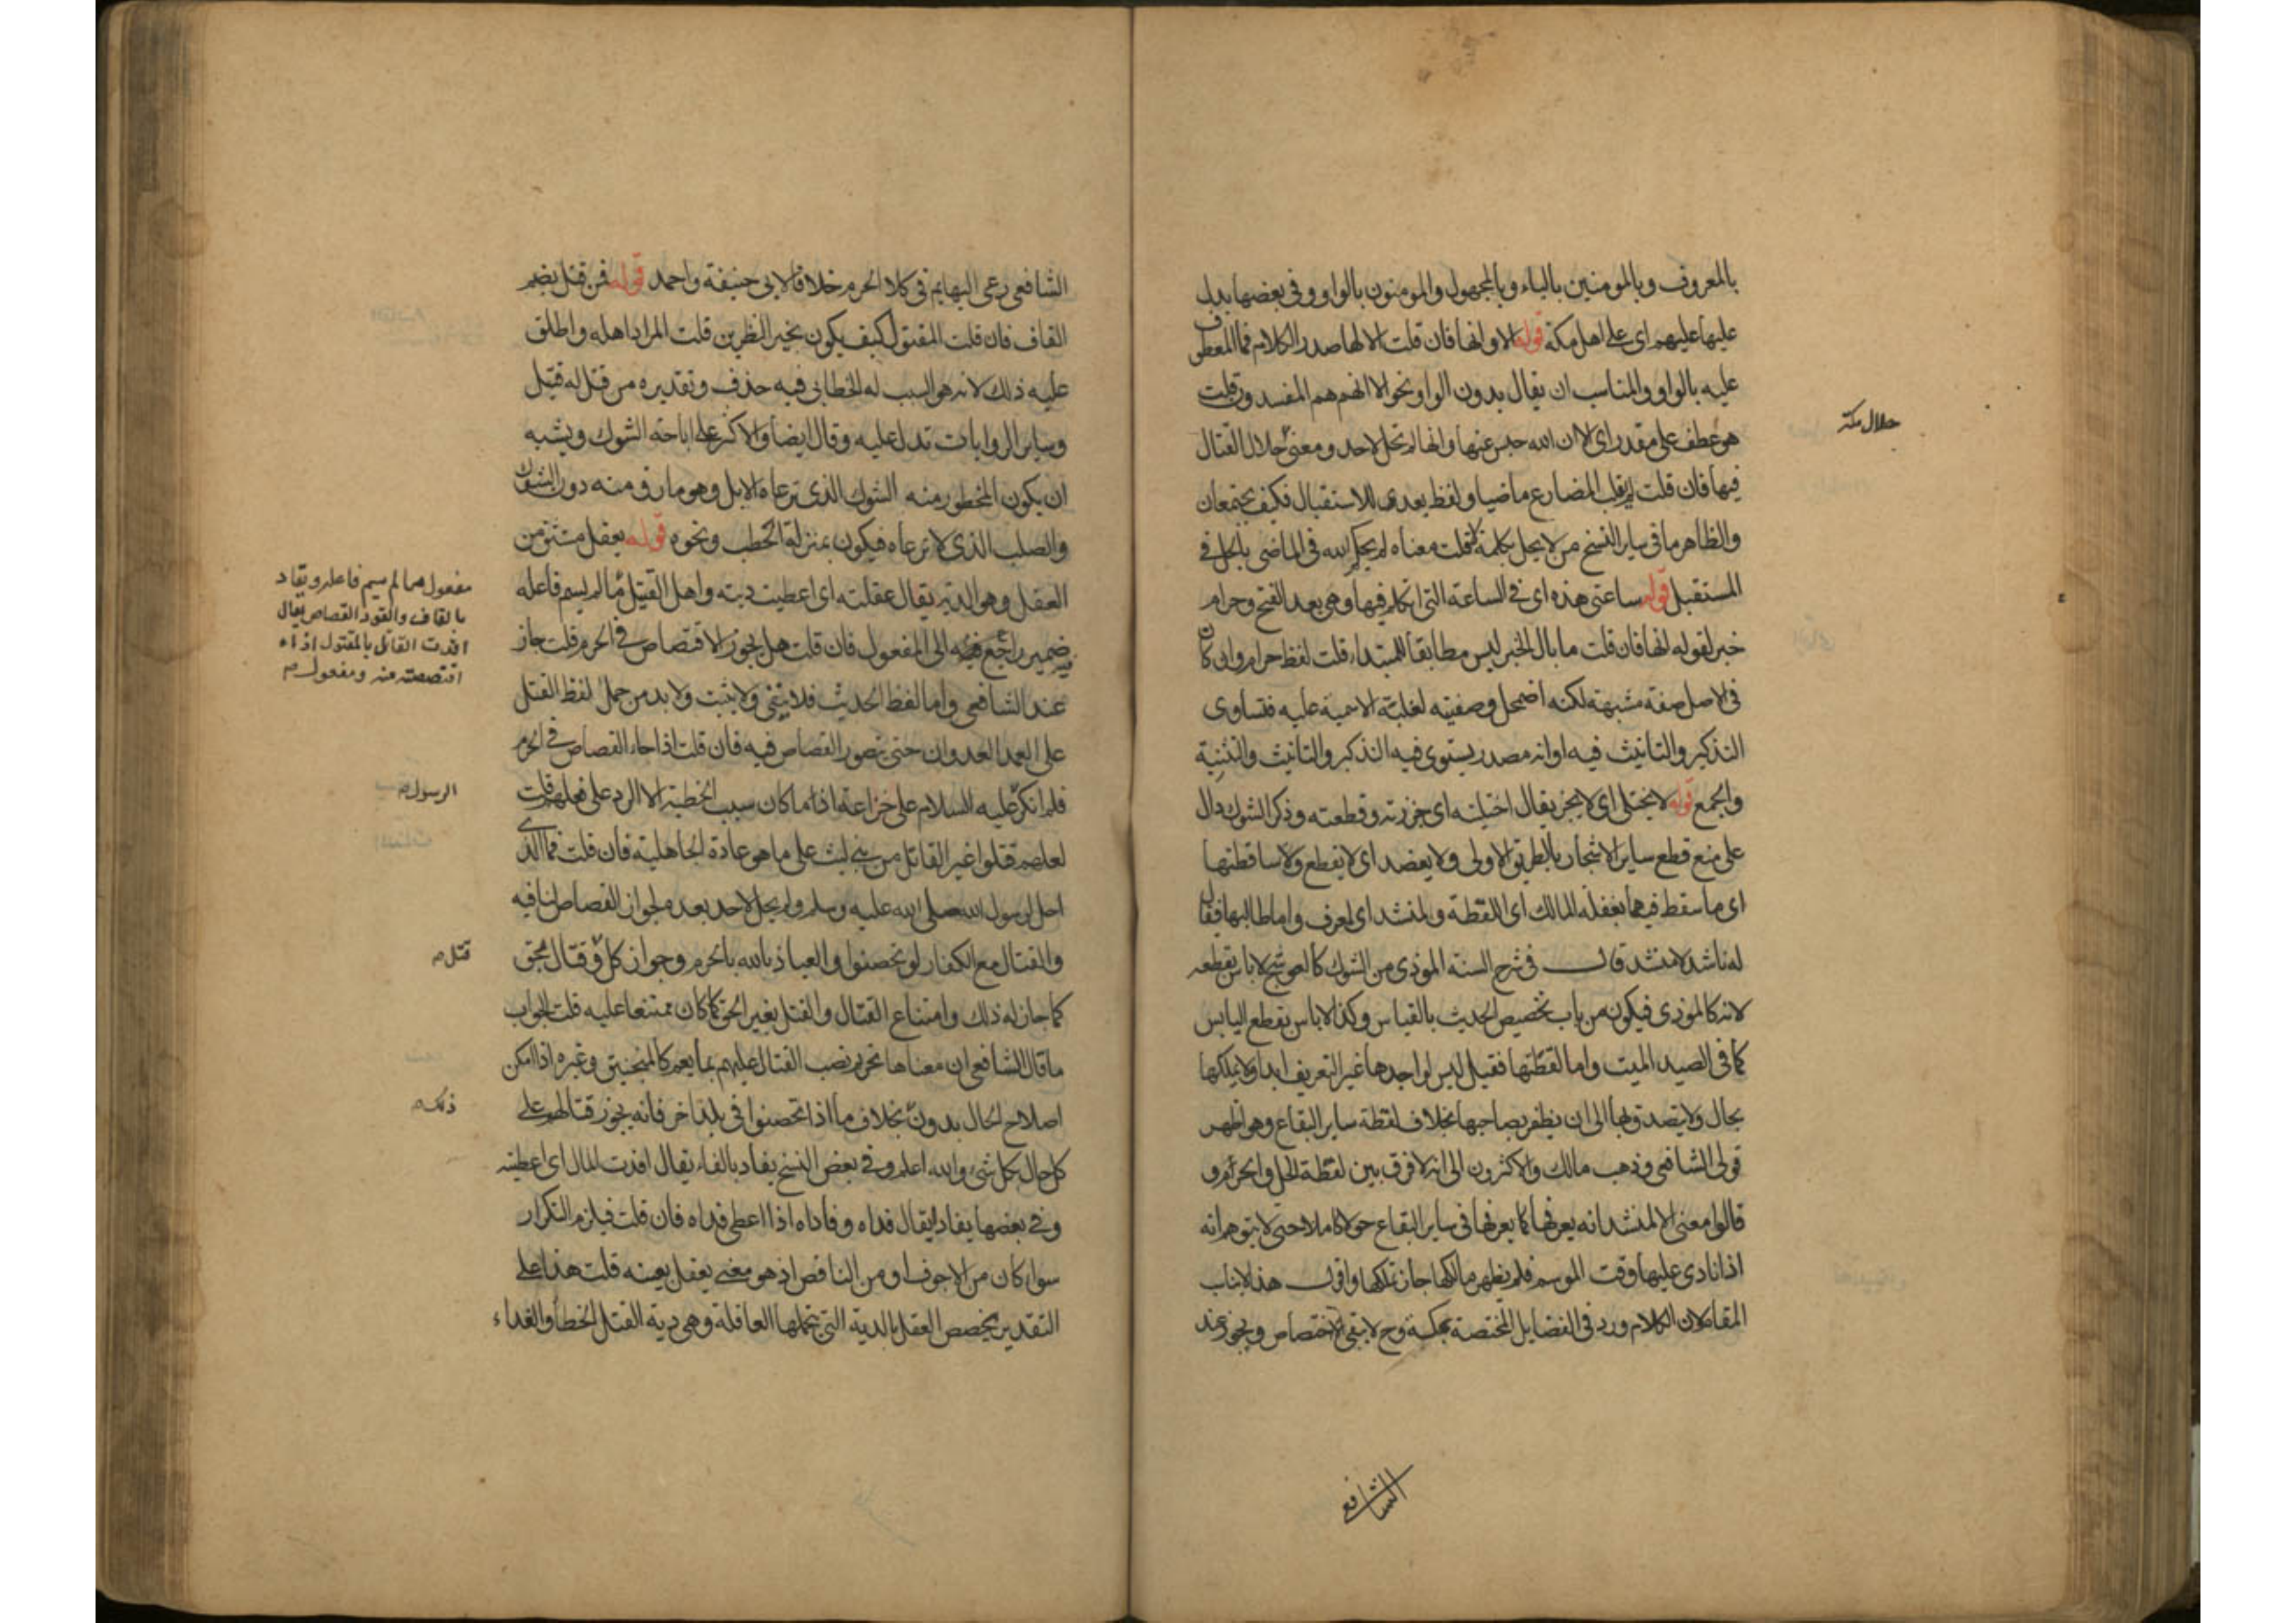 بالمعروف وبالمومنين بالياء وبالمجهول والمومنون بالواو وفى بعضها بدل
عليها عليهم اى على اهل مكة قوله الا وانها فان قلت الا لها صدر الكلام فما المعطوف
عليه بالواو والمناسب ان يقال بدون الواو نحو الا انهم هم المفسدون قلت
هو عطف على مقدر اى الا ان الله حبس عنها وانها لم تحل لاحد ومعنى حلال القتال
حلال مكة
فيها فان قلت لم يقلب المضارع ماضيا ولفظ بعدى للاستقبال فكيف يجتمعان
والظاهر ما فى ساير النسخ من لا يحل بكلمة لا قلت معناه لم يحكم الله فى الماضى بالحل فى
المستقبل قوله ساعتى هذه اى فى الساعة التى اتكلم فيها وهى بعد الفتح وحرام
خبر لقوله انها فان قلت ما بال الخبر ليس مطابقا للمبتداء قلت لفظ حرام وان كان
فى الاصل صفة مشبهة لكنه اضمحل وصفيته لغلبة الاسمية عليه فتساوى
التذكير والتانيث فيه او انه مصدر يستوى فيه التذكير والتانيث والتثنية
والجمع قوله لا يختلى اى لا يجز يقال اختليته اى جززته وقطعته وذكر الشوك دال
على منع قطع ساير الاشجار بالطريق الاولى ولا يعضد اى لا يقطع ولا ساقطتها
اى ما سقط فيها بغفلة المالك اى اللقطة والمنشد اى لمعرف واما طالبها فيقال
له ناشد لا منشد قال فى شرح السنة الموذى من الشوك كالعوسج لا باس بقطعه
لانه كالموذى فيكون من باب تخصيص الحديث بالقياس وكذا لا باس بقطع اليابس
كما فى الصيد الميت واما لقطتها فقيل ليس لواجدها غير التعريف ابدا ولا يملكها
بحال ولا يتصدق بها الى ان يظفر بصاحبها بخلاف لقطة ساير البقاع وهو اظهر
قولى الشافعى وذهب مالك والاكثرون الى انه لا فرق بين لقطة الحل والحرم و
قالوا معنى الا لمنشد انه يعرفها كما يعرفها فى ساير البقاع حولا كاملا حتى لا يتوهم انه
اذا نادى عليها وقت الموسم فلم يظهر مالكها جاز تملكها واقول هذا لا يناسب
المقام لان الكلام ورد فى الفضايل المختصة بمكة وح لا يبقى الاختصاص ويجوز عند
الشافعى
الشافعى رعى البهايم فى كلا الحرم خلافا لابى حنيفة واحمد قوله فمن قتل بضم
القاف فان قلت المقتول كيف يكون بخير النظرين قلت المراد اهله واطلق
عليه ذلك لانه هو السبب له الخطابى فيه حذف وتقديره من قتل له قتيل
وساير الروايات تدل عليه وقال ايضا والاكثر على اباحة الشوك ويشبه
ان يكون المحظور منه الشوك الذى ترعاه الابل وهو ما رق منه دون الشوك
والصلب الذى لا ترعاه فيكون بمنزلة الحطب ونحوه قوله يعقل مشتق من
العقل وهو الدية يقال عقلته اى اعطيت ديته واهل القتيل ما لم يسم فاعله
مفعول مما لم يسم فاعله ويقاد
بالقاف والقود القصاص يقال
اقدت القاتل بالمقتول اذا
اقتصصته منه ومفعول
ضمير راجع فيه الى المفعول فان قلت هل يجوز الاقتصاص فى الحرم قلت جاز
عند الشافعى واما لفظ الحديث فلا ينفى ولا يثبت ولا بد من حمل لفظ القتل
على العمد العدوان حتى يتصور القصاص فيه فان قلت اذا جاء القصاص فى الحرم
فلم انكر عليه السلام على خزاعة اذ ما كان سبب الخطبة الا الرد على فعلهم قلت
الرسول
لعلهم قتلوا غير القاتل من بنى ليث على ما هو عادة الجاهلية فان قلت فما الذى
احل لرسول الله صلى الله عليه وسلم ولم يحل لاحد بعده لجواز القصاص لنا فيه
والقتال مع الكفار لو تحصنوا والعياذ بالله بالحرم وجواز كل وقتال بحق
قتل
كما جاز له ذلك وامتناع القتال والقتل بغير الحق كما كان ممتنعا عليه قلت الجواب
ما قال الشافعى ان معناها تحريم نصب القتال عليهم بما يعم كالمنجنيق وغيره اذا امكن
اصلاح الحال بدون بخلاف ما اذا تحصنوا فى بلد اخر فانه يجوز قتالهم على
ذلك
كل حال بكل شئ والله اعلم وفى بعض النسخ يفاد بالفاء يقال افدت المال اى اعطيته
وفى بعضها يفادا يقال فداه وفاداه اذا اعطى فداه فان قلت فيلزم التكرار
سوا كان من الاجوف او من الناقص اذ هو معنى يعقل بعينه قلت هذا على
التقدير يخصص العقل بالدية التى يتحملها العاقلة وهى دية القتل الخطأ والفداء